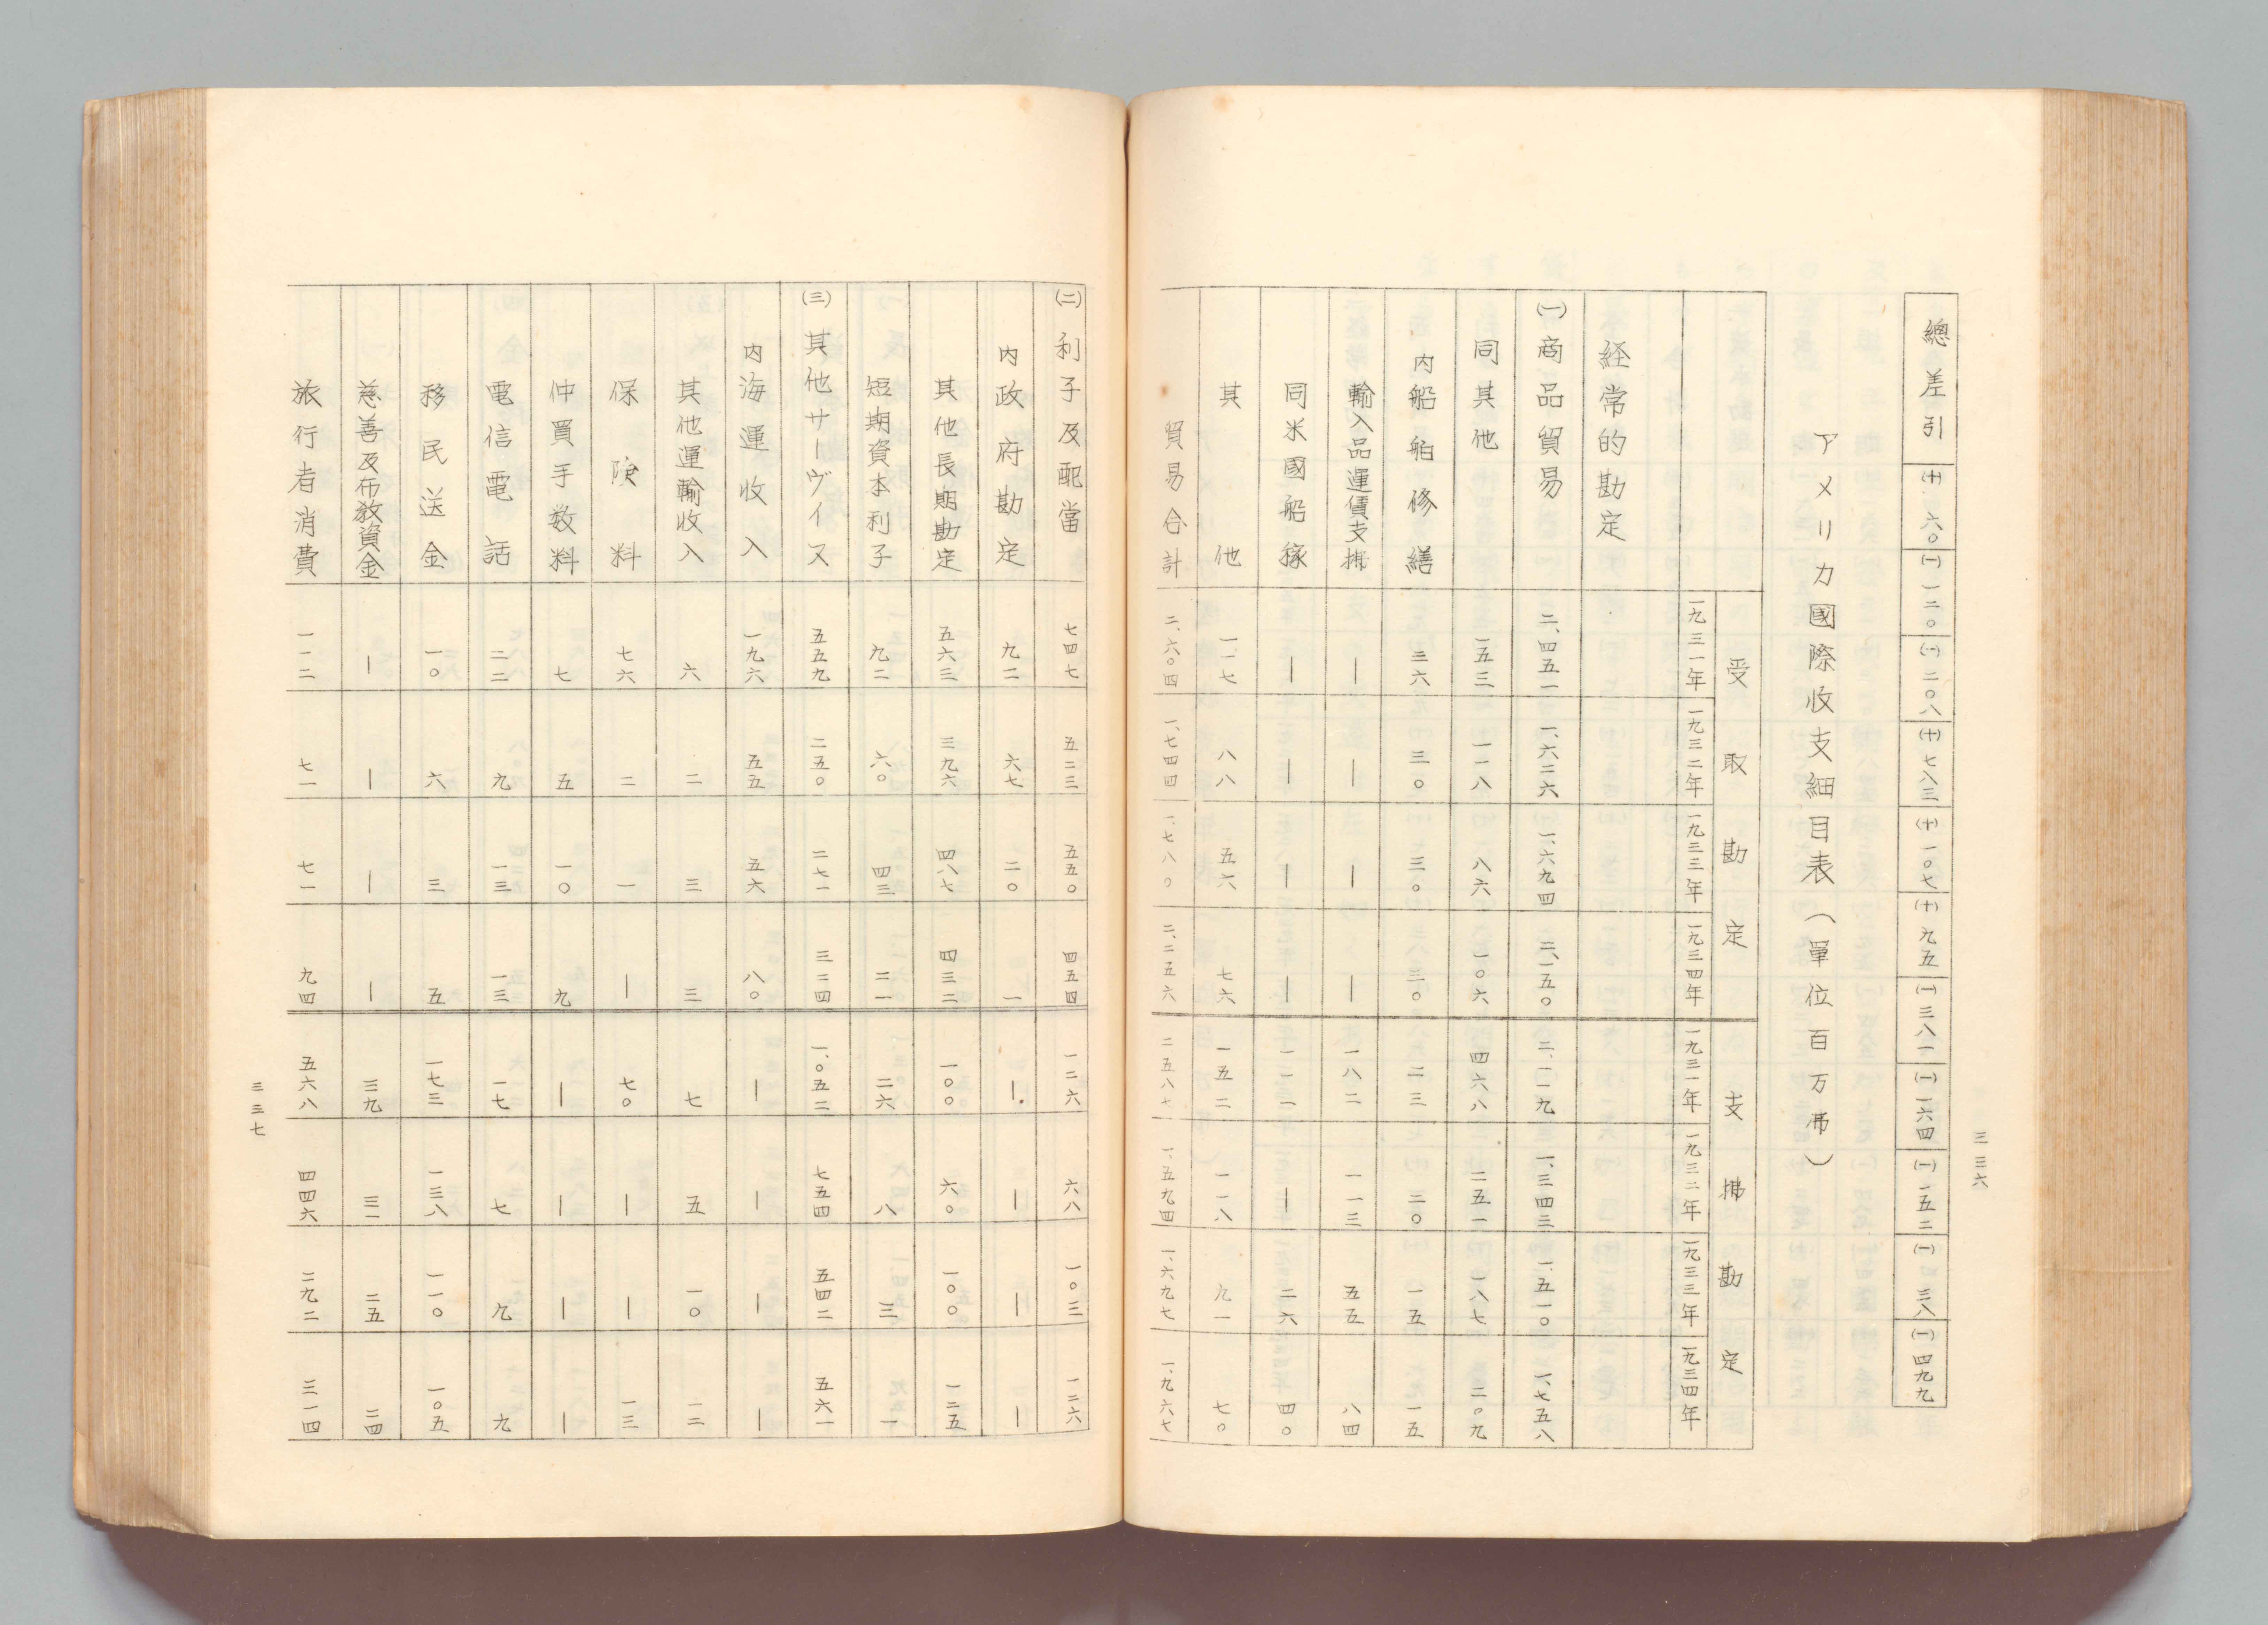 三三六
總差引 (十)六〇 (一)一二〇 (一)二〇八 (十)七八三 (十)一〇七 (十)九五 (一)三八一 (一)一六四 (一)一五二 (一)三八 (一)四九九
アメリカ國際收支細目表（單位百万弗）
受取勘定 支拂勘定
一九三一年 一九三二年 一九三三年 一九三四年 一九三一年 一九三二年 一九三三年 一九三四年
経常的勘定
(一)商品貿易 二、四五一 一、六二六 一、六九四 二、一五〇 二、一一九 一、三四三 一、五一〇 一、七五八
同其他 一五三 一一八 八六 一〇六 四六八 二五一 一八七 二〇九
内船舶修繕 三六 三〇 三〇 三〇 二三 二〇 一五 一五
輸入品運賃支拂 ― ― ― ― 一八二 一一三 五五 八四
同米國船稼 ― ― ― ― 一一一 ― 二六 四〇
其他 一一七 八八 五六 七六 一五二 一一八 九一 七〇
貿易合計 二、六〇四 一、七四四 一、七八〇 二、二五六 二五八七 一、五九四 一、六九七 一、九六七
(二)利子及配當 七四七 五二三 五五〇 四五四 一二六 六八 一〇三 一二六
内政府勘定 九二 六七 二〇 一 ― ― ― ―
其他長期勘定 五六三 三九六 四八七 四三二 一〇〇 六〇 一〇〇 一二五
短期資本利子 九二 六〇 四三 二一 二六 八 三 一
(三)其他サーヴイス 五五九 二五〇 二七一 三二四 一、〇五二 七五四 五四二 五六一
内海運收入 一九六 五五 五六 八〇 ― ― ― ―
其他運輸收入 六 二 三 三 七 五 一〇 一二
保険料 七六 二 一 ― 七〇 ― ― 一三
仲買手数料 七 五 一〇 九 ― ― ― ―
電信電話 二二 九 一三 一三 一七 七 九 九
移民送金 一〇 六 三 五 一七三 一三八 一一〇 一〇五
慈善及布教資金 ― ― ― ― 三九 三一 二五 二四
旅行者消費 一一二 七一 七一 九四 五六八 四四六 二九二 三一四
三三七